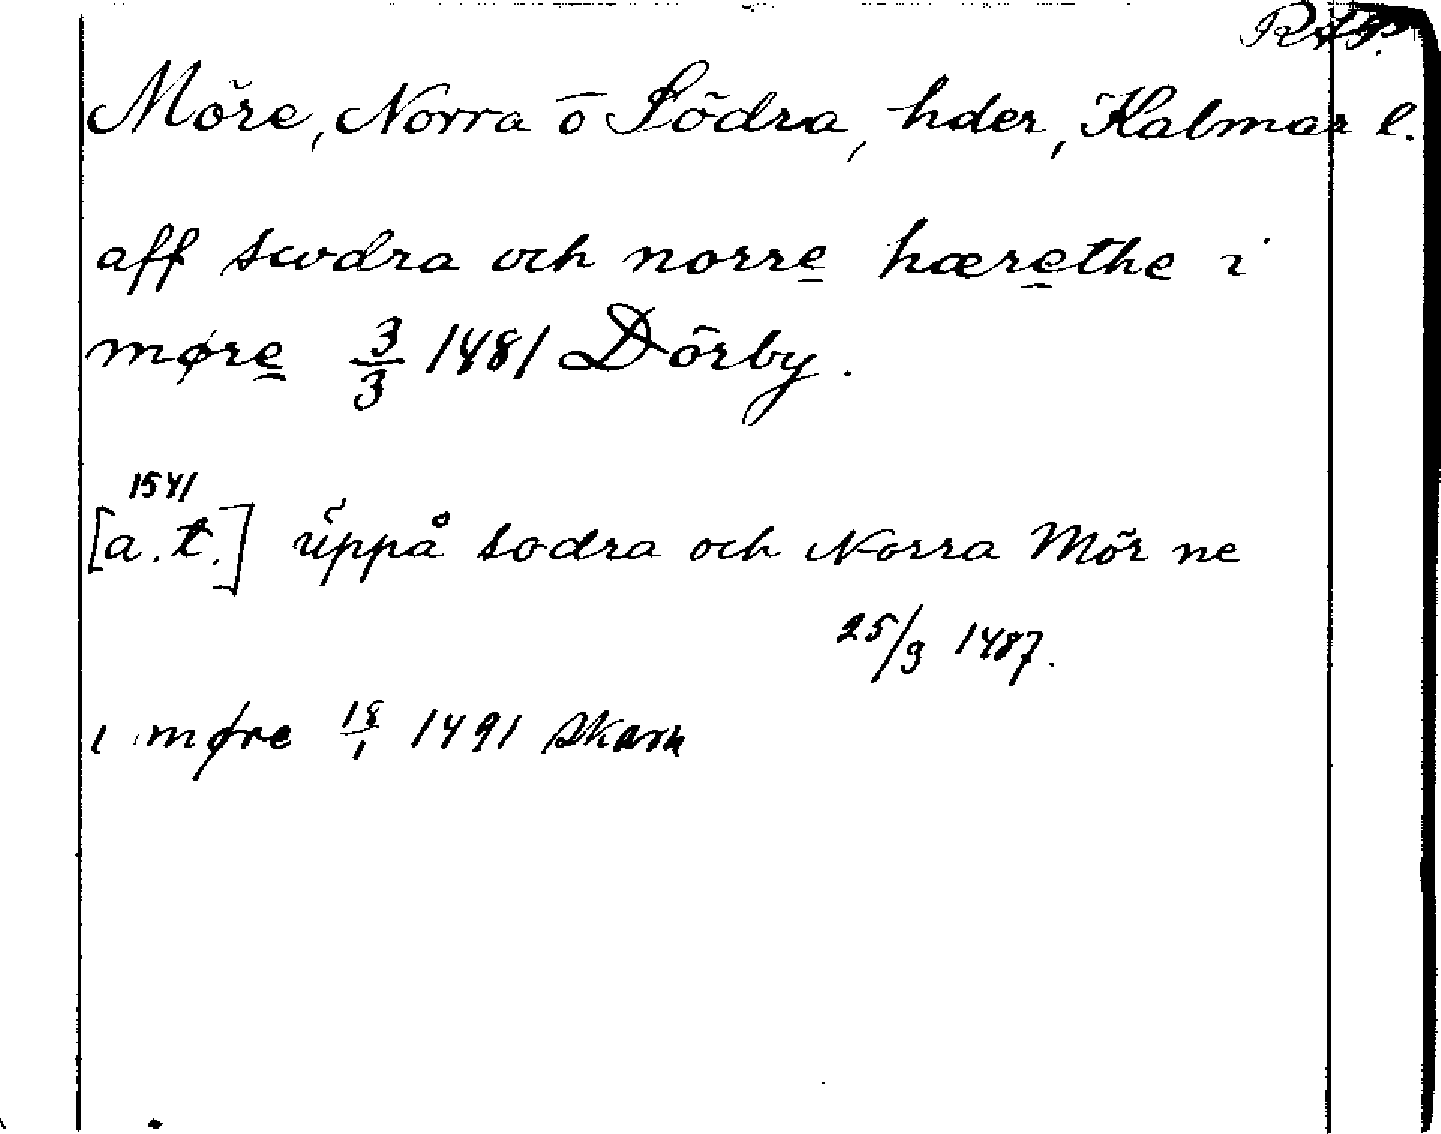 RAP.
Möre, Norra o Södra, hder, Kalmar l.
aff swdra och norre hærethe i
møre 3/3 1481 Dörby.
1541
[a.t.] uppå sodra och Norra Mör ne
25/9 1487.
i møre 18/1 1491 Skara